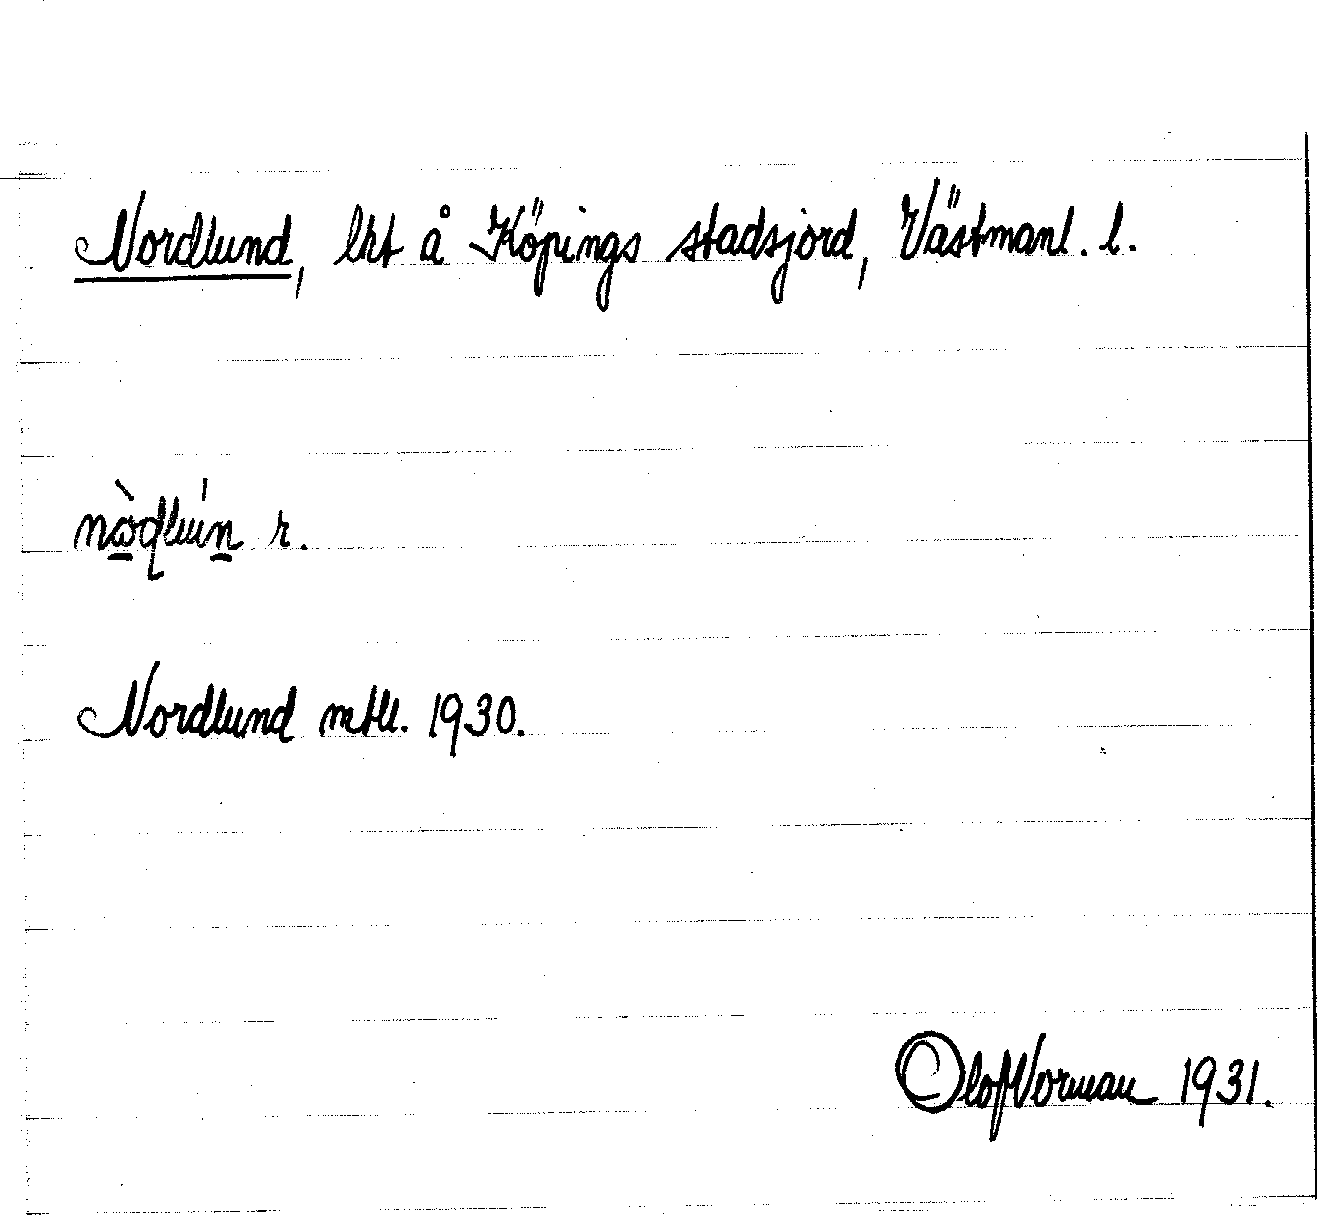 Nordlund, lht å Köpings stadsjord, Västmanl. l.
nò̱ɖluṉ́ r.
Nordlund mtll. 1930.
Olof Norman 1931.